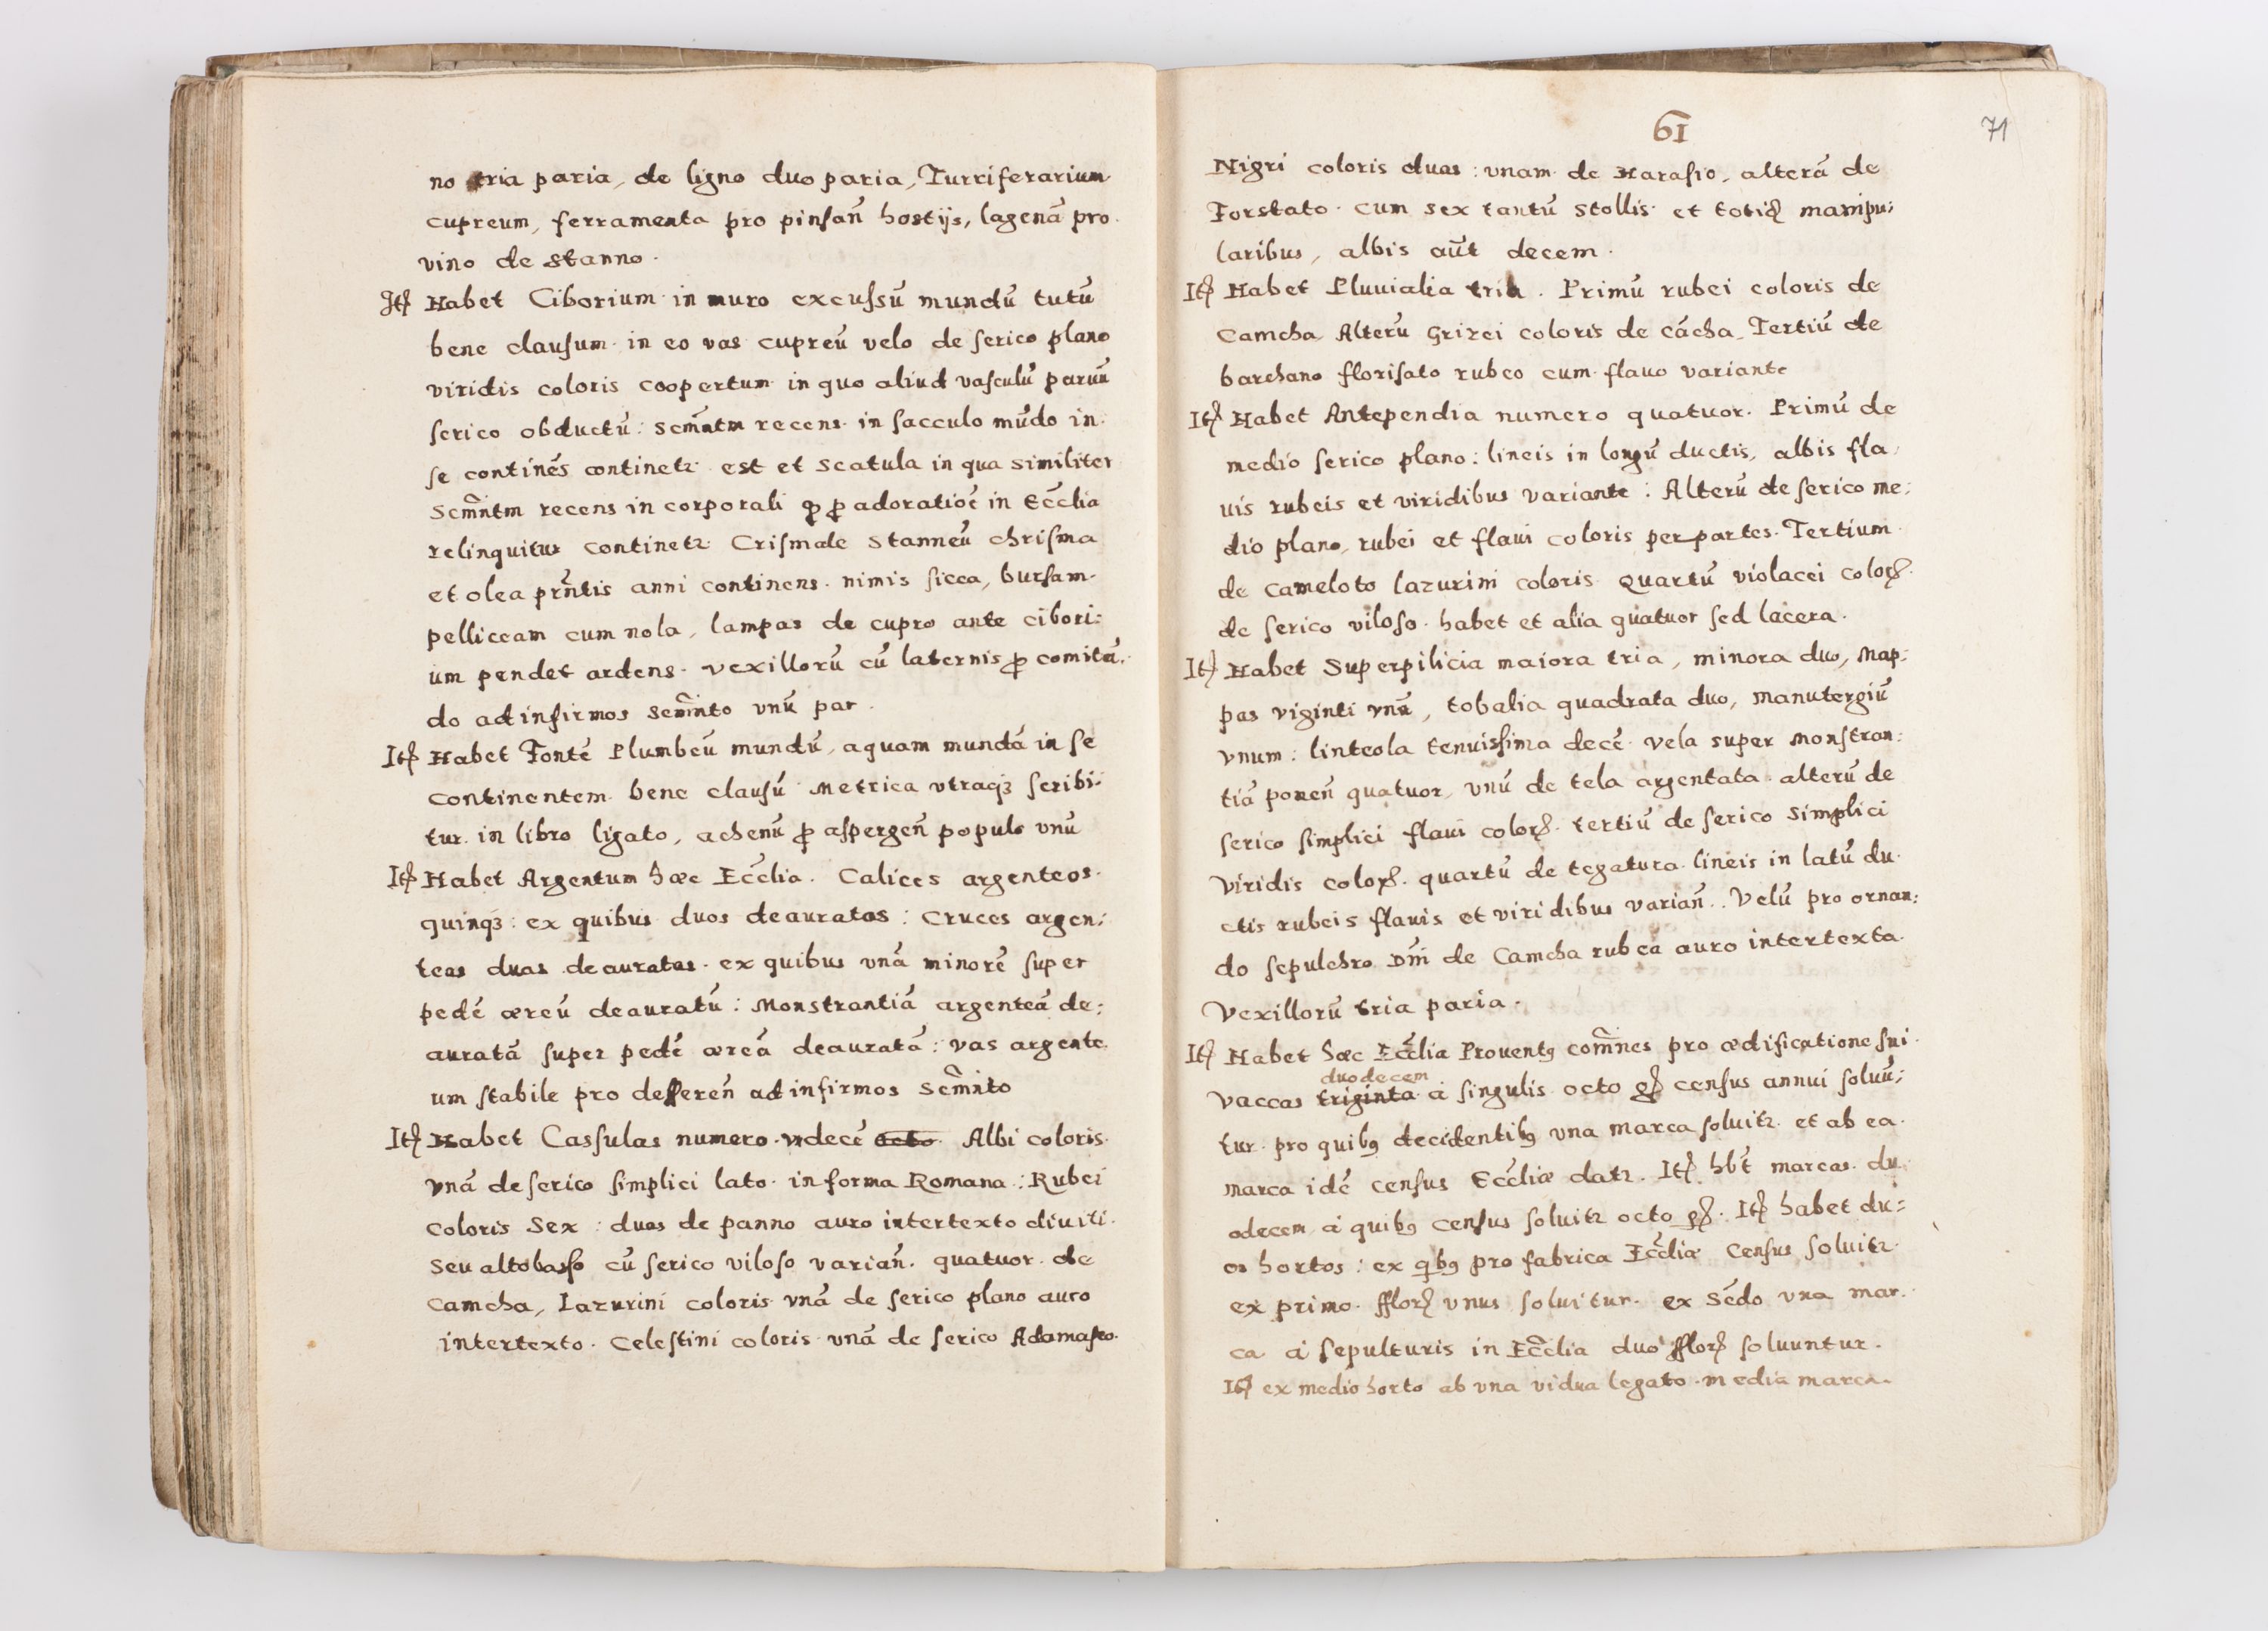 no tria paria, de ligno duo paria, Turriferarium
cupreum, ferramenta pro pinsan̄ hostijs, lagenā pro
vino de stanno.
Itꝭ Habet Ciborium in muro excussū mundū tutū
bene clausum in eo vas cupreū velo de serico plano
viridis coloris coopertum in quo aliud vasculū paruū
serico obductū: Scm̄ntm recens in sacculo mūdo in
se continēs continetr est et Scatula in qua similiter
Scm̄ntm recens in corporali ꝙ ꝓ adoratiōe in Ecc̄lia
relinquitur continetr Crismale Stanneū chrisma
et olea prn̄tis anni continens nimis sicca, bursam
pelliceam cum nola, lampas de cupro ante cibori:
um pendet ardens. vexillorū cū laternis ꝓ comitā:
do ad infirmos Scm̄nto vnū par.
Itꝭ Habet Fontē Plumbeū mundū, aquam mundā in se
continentem bene clausū Metrica vtraqꝫ scribi:
tur in libro ligato, achenū ꝓ aspergen̄ populo vnū
Itꝭ Habet Argentum hæc Ecc̄lia. Calices argenteos
quinqꝫ: ex quibus duos deauratos: Cruces argen:
teas duas deauratas. ex quibus vnā minorē super
pedē æreū deauratū: Monstrantiā argenteā de:
auratā super pedē æreā deauratā: vas argente
um stabile pro defferen̄ ad infirmos Scm̄nto
Itꝭ Habet Cassulas numero vndecē octo Albi coloris
vnā de serico simplici lato in forma Romana: Rubei
coloris Sex: duas de panno auro intertexto diuiti
seu altobasso cū serico viloso varian̄. quatuor de
Camcha, Lazurini coloris vnā de serico plano auro
intertexto. Celestini coloris vnā de serico Adamasco.
61
71
Nigri coloris duas: vnam de Harasio, alterā de
Forstato cum sex tantū Stollis et totidꝭ manipu:
laribus, albis aūt decem.
Itꝭ Habet Pluuialia tria. Primū rubei coloris de
Camcha Alterū Grizei coloris de cācha Tertiū de
barchano florisato rubeo cum flauo variante
Itꝭ Habet Antependia numero quatuor. Primū de
medio serico plano: lineis in longū ductis, albis fla
uis rubeis et viridibus variante: Alterū de serico me:
dio plano, rubei et flaui coloris per partes. Tertium
de Cameloto lazurini coloris Quartū violacei colorꝭ
de serico viloso. habet et alia quatuor sed lacera.
Itꝭ Habet Superpilicia maiora tria, minora duo, Map:
pas viginti vnū, tobalia quadrata duo, manutergiū
vnum: linteola tenuissima decē vela super Monstran:
tiā ponen̄ quatuor, vnū de tela argentata alterū de
serico simplici flaui colorꝭ. tertiū de serico simplici
viridis colorꝭ. quartū de tegatura lineis in latū du
ctis rubeis flauis et viridibus varian̄. Velū pro ornan:
do sepulchro Dn̄i de Camcha rubea auro intertexta.
Vexillorū tria paria.
Itꝭ Habet hæc Ecc̄lia Prouentꝰ com̄nes pro ædificatione sui
duodecem
vaccas triginta à singulis octo gꝭ census annui soluū:
tur pro quibꝰ decidentibꝰ vna marca soluitr et ab ea
marca idē census Ecc̄liæ datr. Itꝭ hb̄t marcas du
odecem à quibꝰ census soluitr octo gꝭ. Itꝭ habet du:
os hortos: ex qbꝰ pro fabrica Ecc̄liæ Census soluitr
ex primo fflorꝭ vnus soluitur. ex Scd̄o vna mar
ca à sepulturis in Ecc̄lia duo fflorꝭ soluuntur.
Itꝭ ex medio horto ab vna vidua legato media marca.